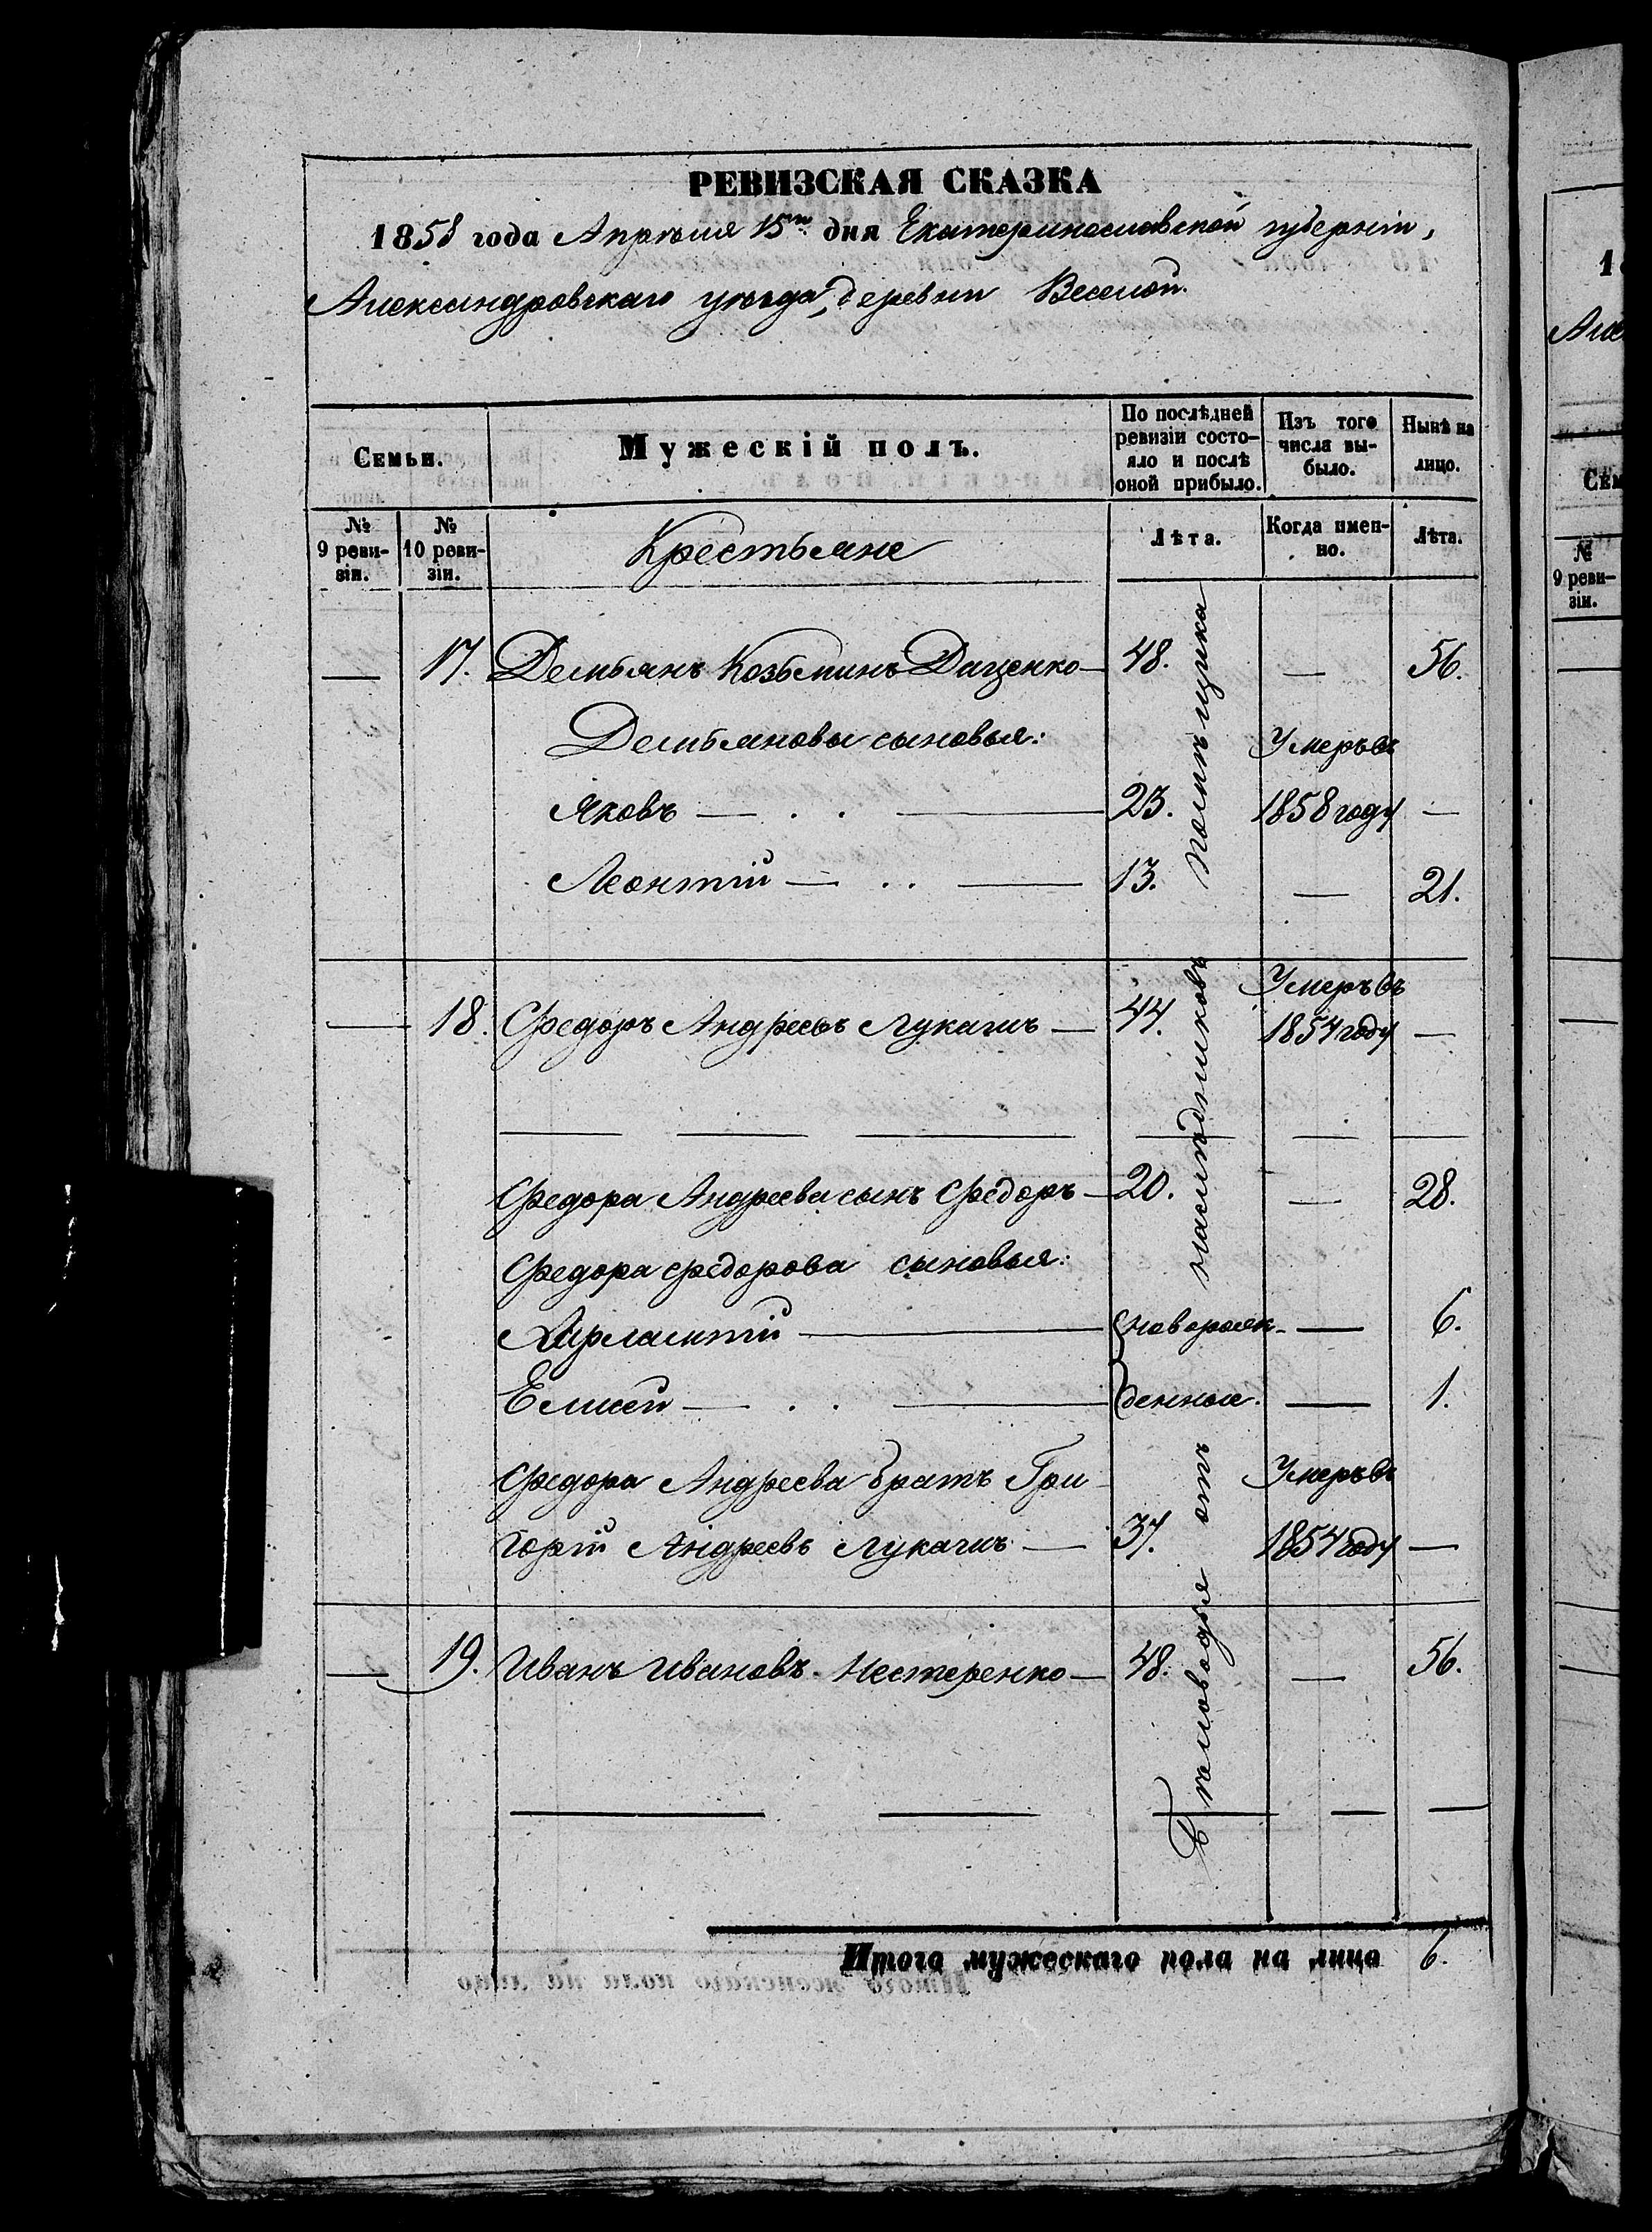 РЕВИЗСКАЯ СКАЗКА
1858 года Апрѣля 15го дня Екатеринославской губерніи,
Александровскаго уѣзда, деревни Веселой.
Семьи.
Мужескій полъ.
По послѣдней ревизіи состо-
яло и послѣ
оной прибыло.
Изъ того
числа вы-
было.
Нынѣ на
лицо.
№
9 реви-
зіи.
№
10 реви-
зіи.
Крестьяне
Лѣта.
Когда имен-
но.
Лѣта.
— 17. Демьянъ Козьминъ Даценко — 48. — 56.
Демьяновы сыновья: Умеръ въ
Яковъ — . . — 23. 1858 году —
Леонтій — . . — 13. — 21.
Умеръ въ
— 18. Федоръ Андреевъ Лукашъ — 44. 1854 году —
Федора Андреева сынъ Федоръ — 20. — 28.
Федора Федорова сыновья:
Харлампій — новорож- — 6.
Елисей — . . — денные. — 1.
Федора Андреева братъ Гри- Умеръ въ
горій Андреевъ Лукашъ — 37. 1854 году —
— 19. Иванъ Ивановъ Нестеренко — 48. — 56.
отъ наслѣдниковъ помѣщика
Итого мужескаго пола на лицо 6.
1
Але
Сем
№
9 реви-
зіи.